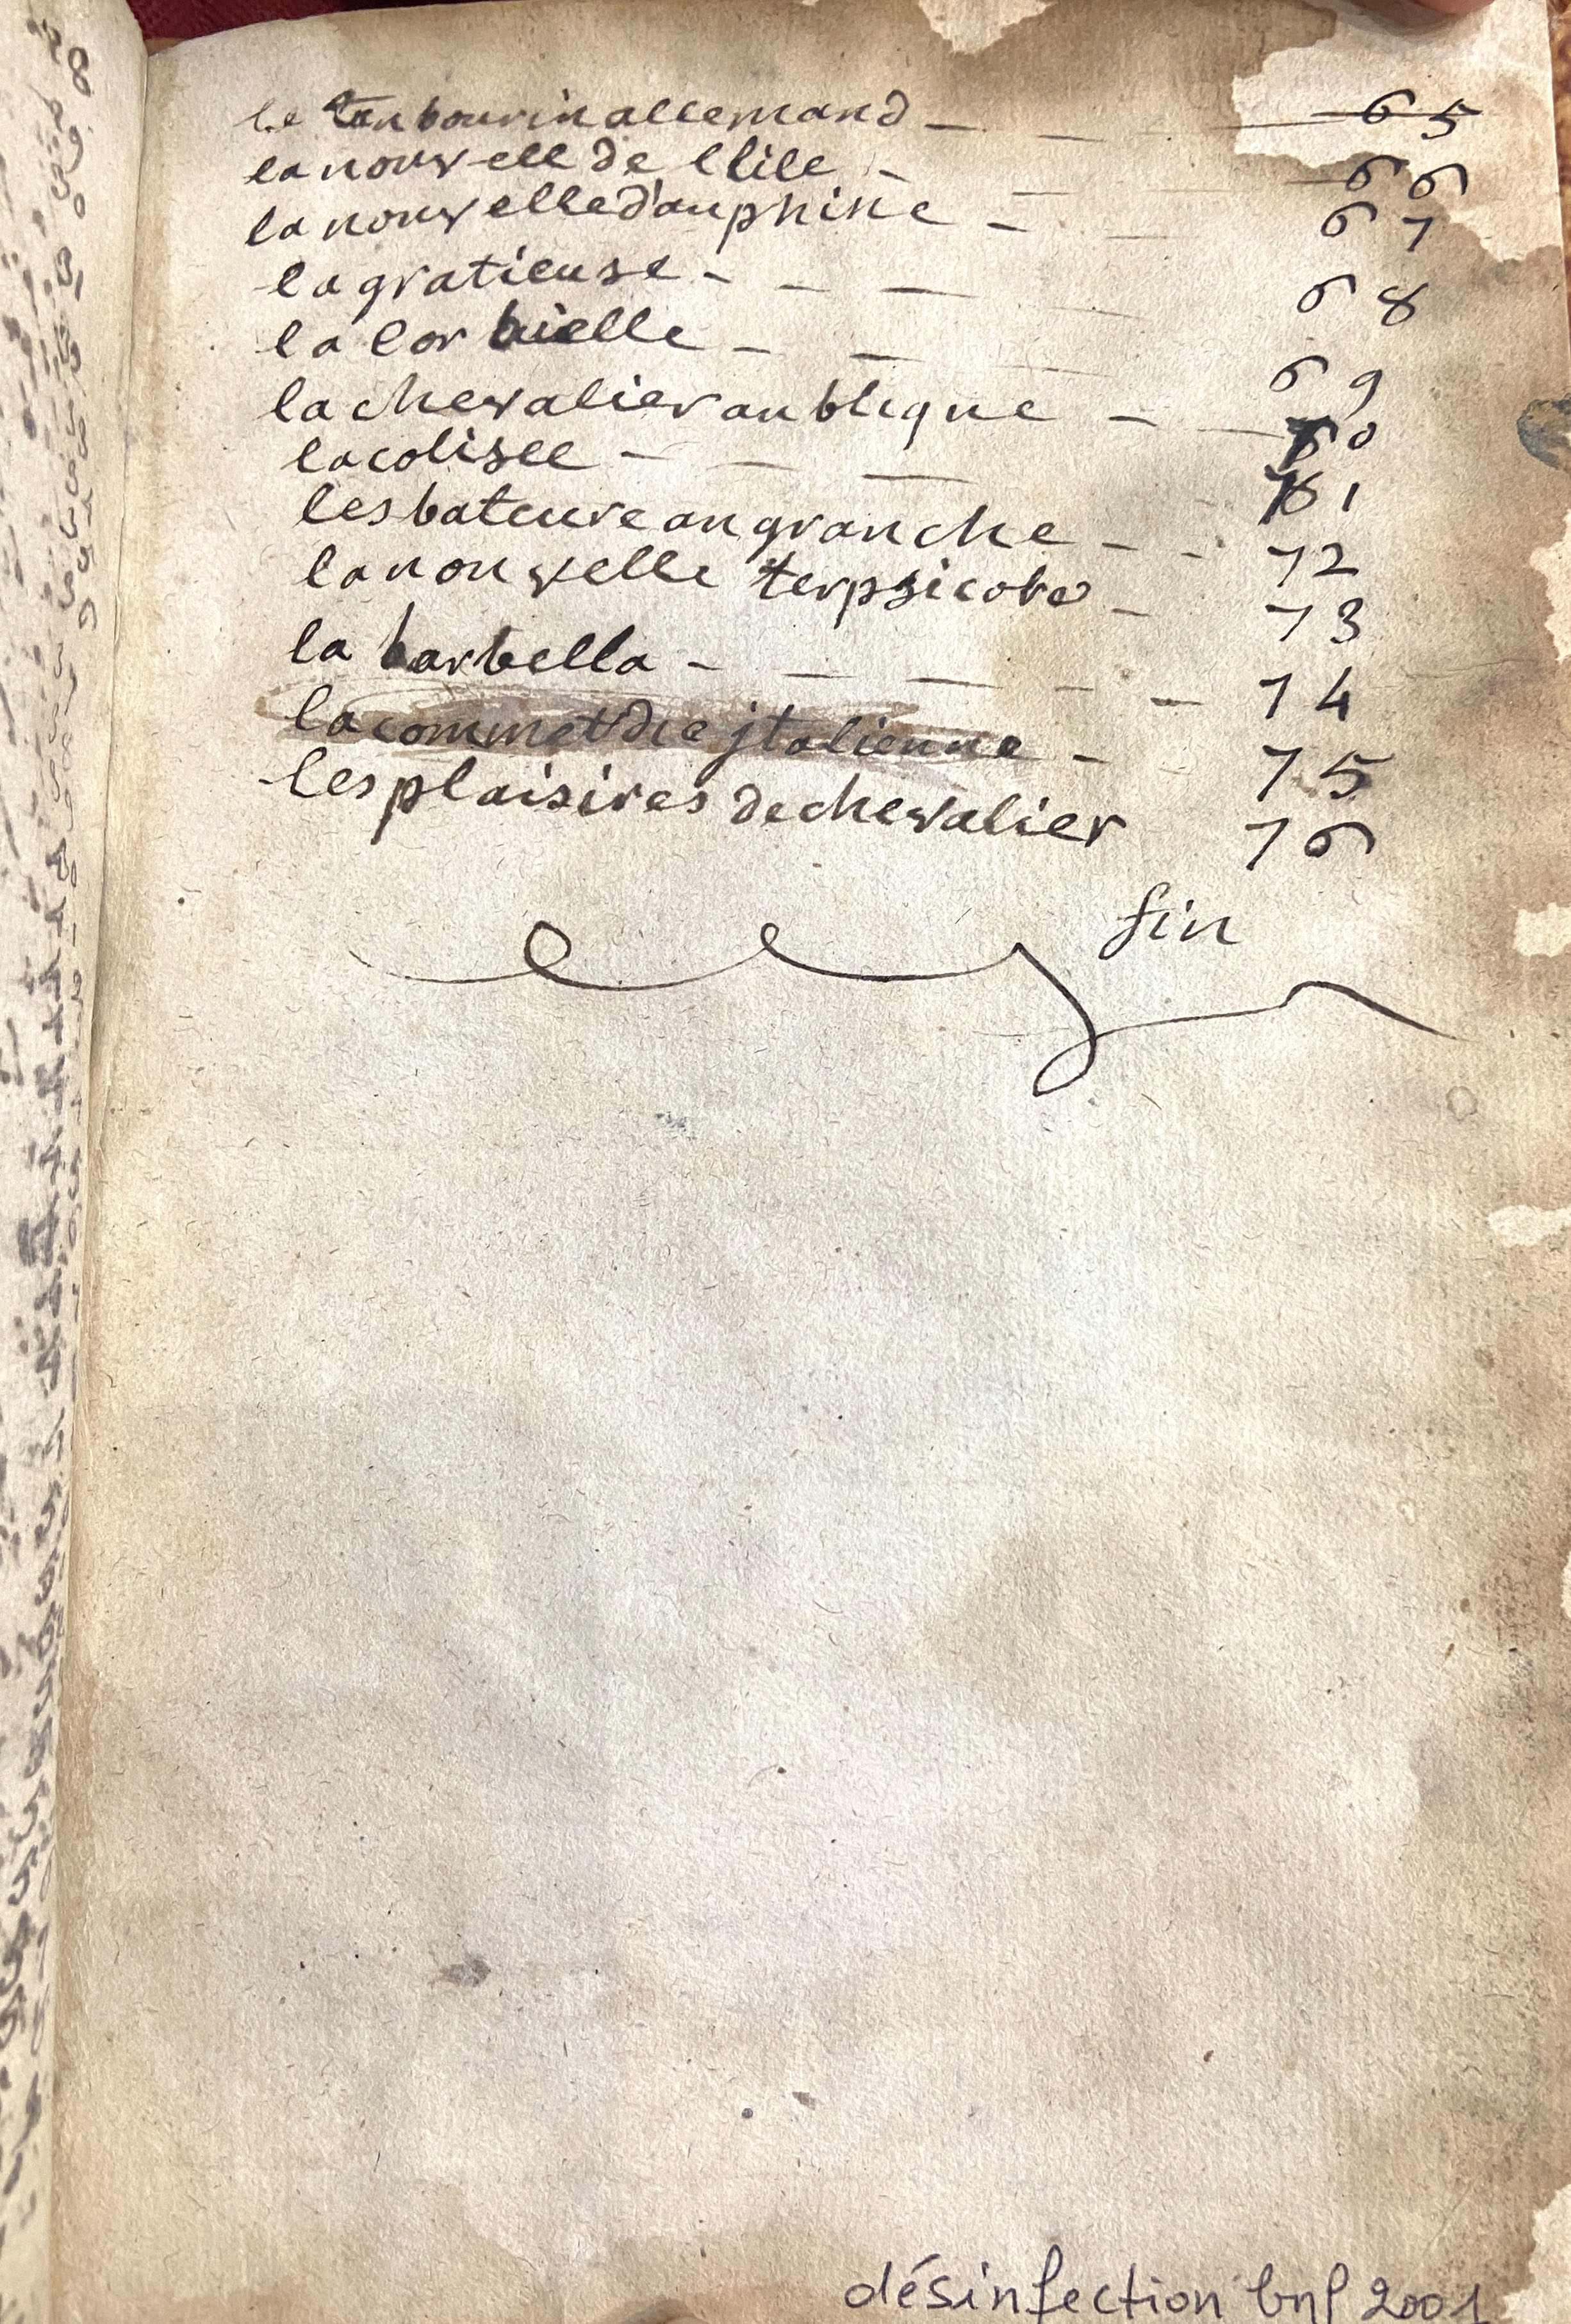 le tanbourin allemand 65
la nouvell de l lile 66
la nouvelle dauphine 67
la gratieuse 68
la cor bielle 69
la chevalier anbligue 70
la colisee 71
les bateure an granche 72
la nouvelle terpsicore 73
la barbella 74
la commetdie jtalienne 75
les plaisires de chevalier 76
fin
désinfection bnf 2001